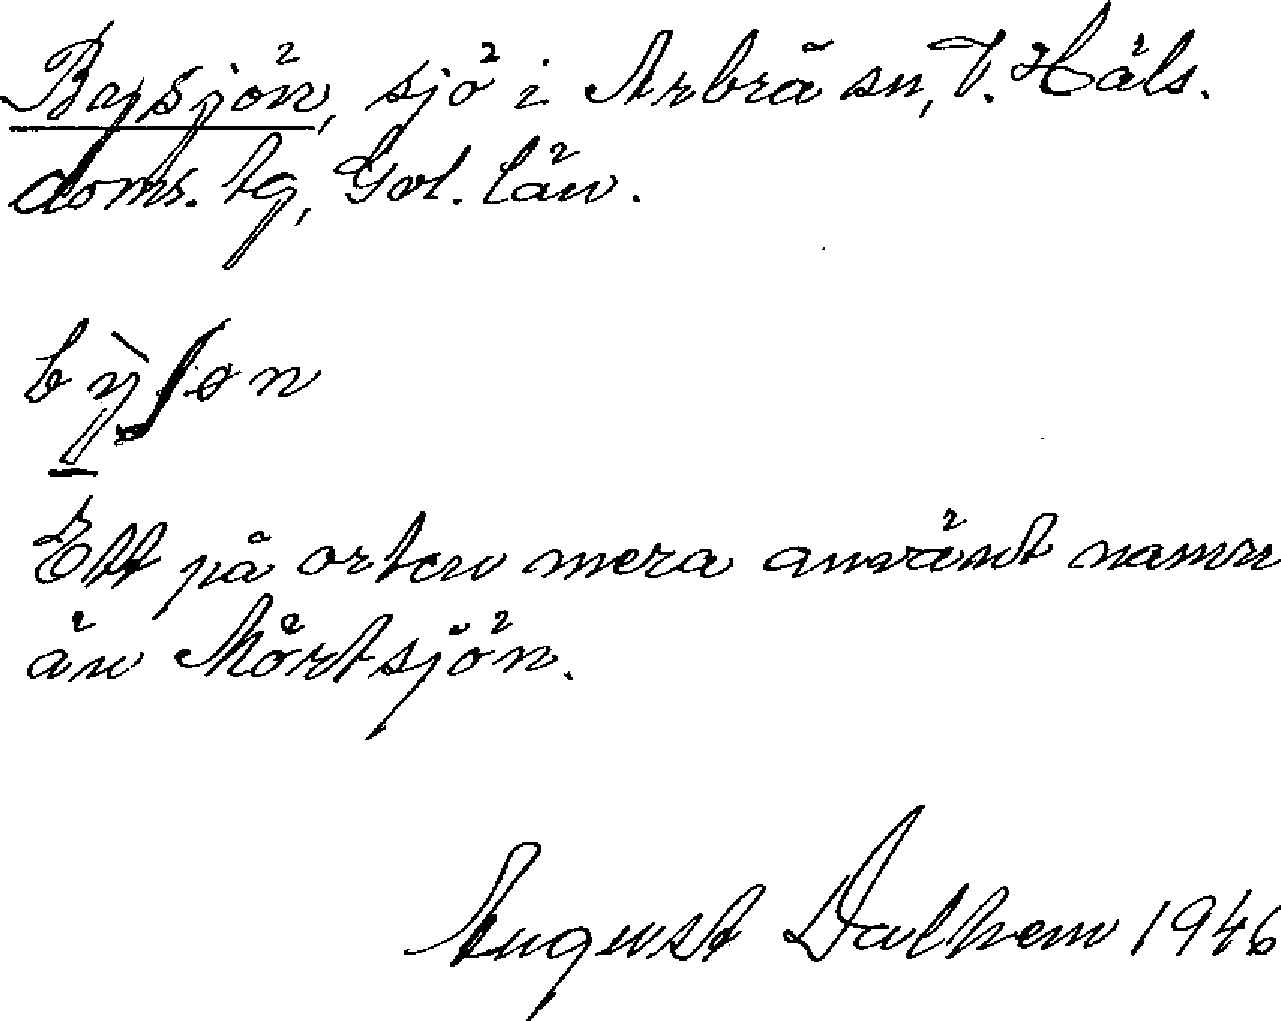 Bysjön, sjö i Arbrå sn, V. Häls.
doms. tg, Gvl. län.
bỳʃøn
Ett på orten mera använt namn
än Mörtsjön.
August Dalhem 1946